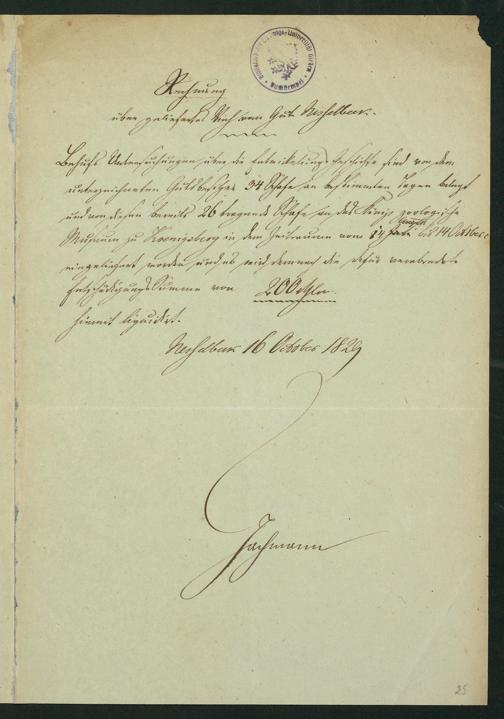 Rechnung
über geliefertes Vieh vom Gut Nesselbeck.
Behufs Untersuchungen über die Entwickelungs Geschichte sind von dem
unterzeichneten Gutsbesitzer 34 Schafe an bestimmten Tagen belegt
und von diesen bereits 26 tragende Schafe an das Königl. zoologische
Museum zu Koenigsberg in dem Zeitraume vom 14 bis 14 October
eingeliefert worden, und es wird demnach die dafür verabredete
Entschädigungs Summe von 200
hiemit liquidirt.
Nesselbeck 16 October 1829
Jachmann
25